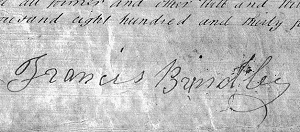 all former and other
thousand eight hundred and thirty
Francis Brindle